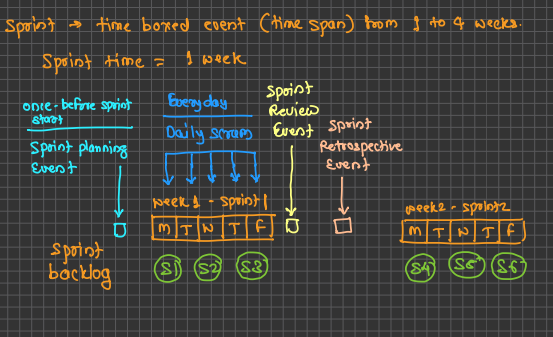 Sprint → time boxed event (time span) from 1 to 4 weeks.
Sprint time = 1 week
once-before sprint
start
Sprint planning
Event
Everyday
Daily scrum
Sprint
Review
Event
Sprint
Retrospective
Event
week1 - sprint1
M T W T F
week2 - sprint2
M T W T F
Sprint
backlog
S1 S2 S3
S4 S5 S6